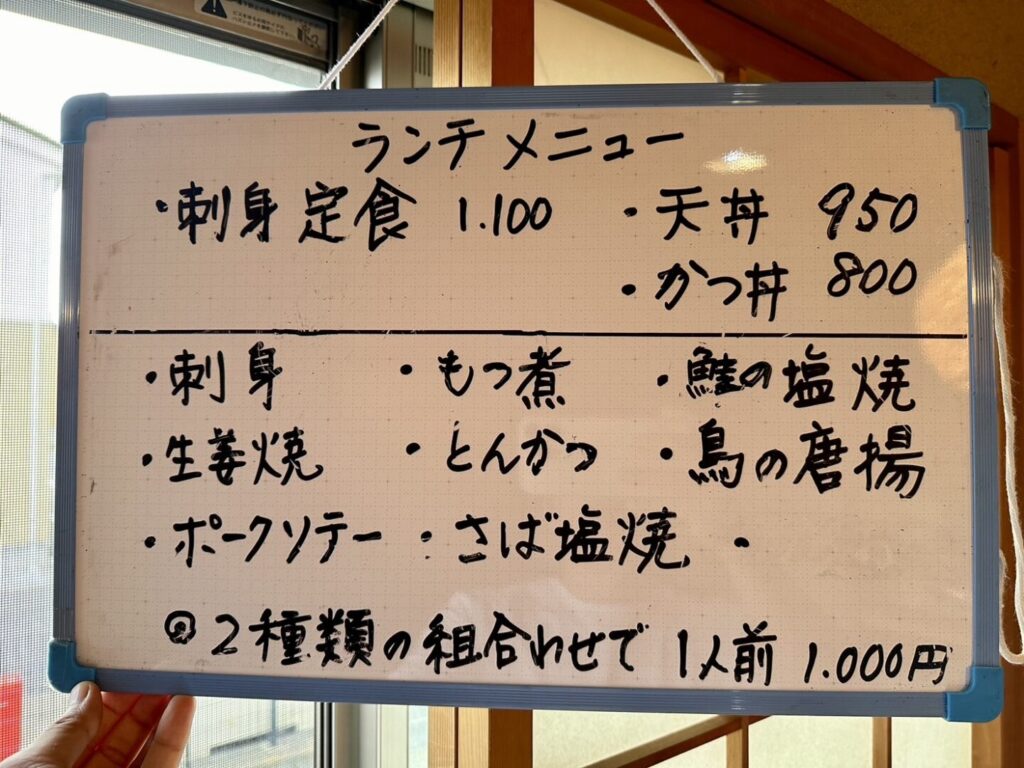 ランチメニュー
・刺身定食 1.100 ・天丼 950
・かつ丼 800
・刺身 ・もつ煮 ・鮭の塩焼
・生姜焼 ・とんかつ ・鳥の唐揚
・ポークソテー ・さば塩焼 ・
◎2種類の組合わせで 1人前 1.000円